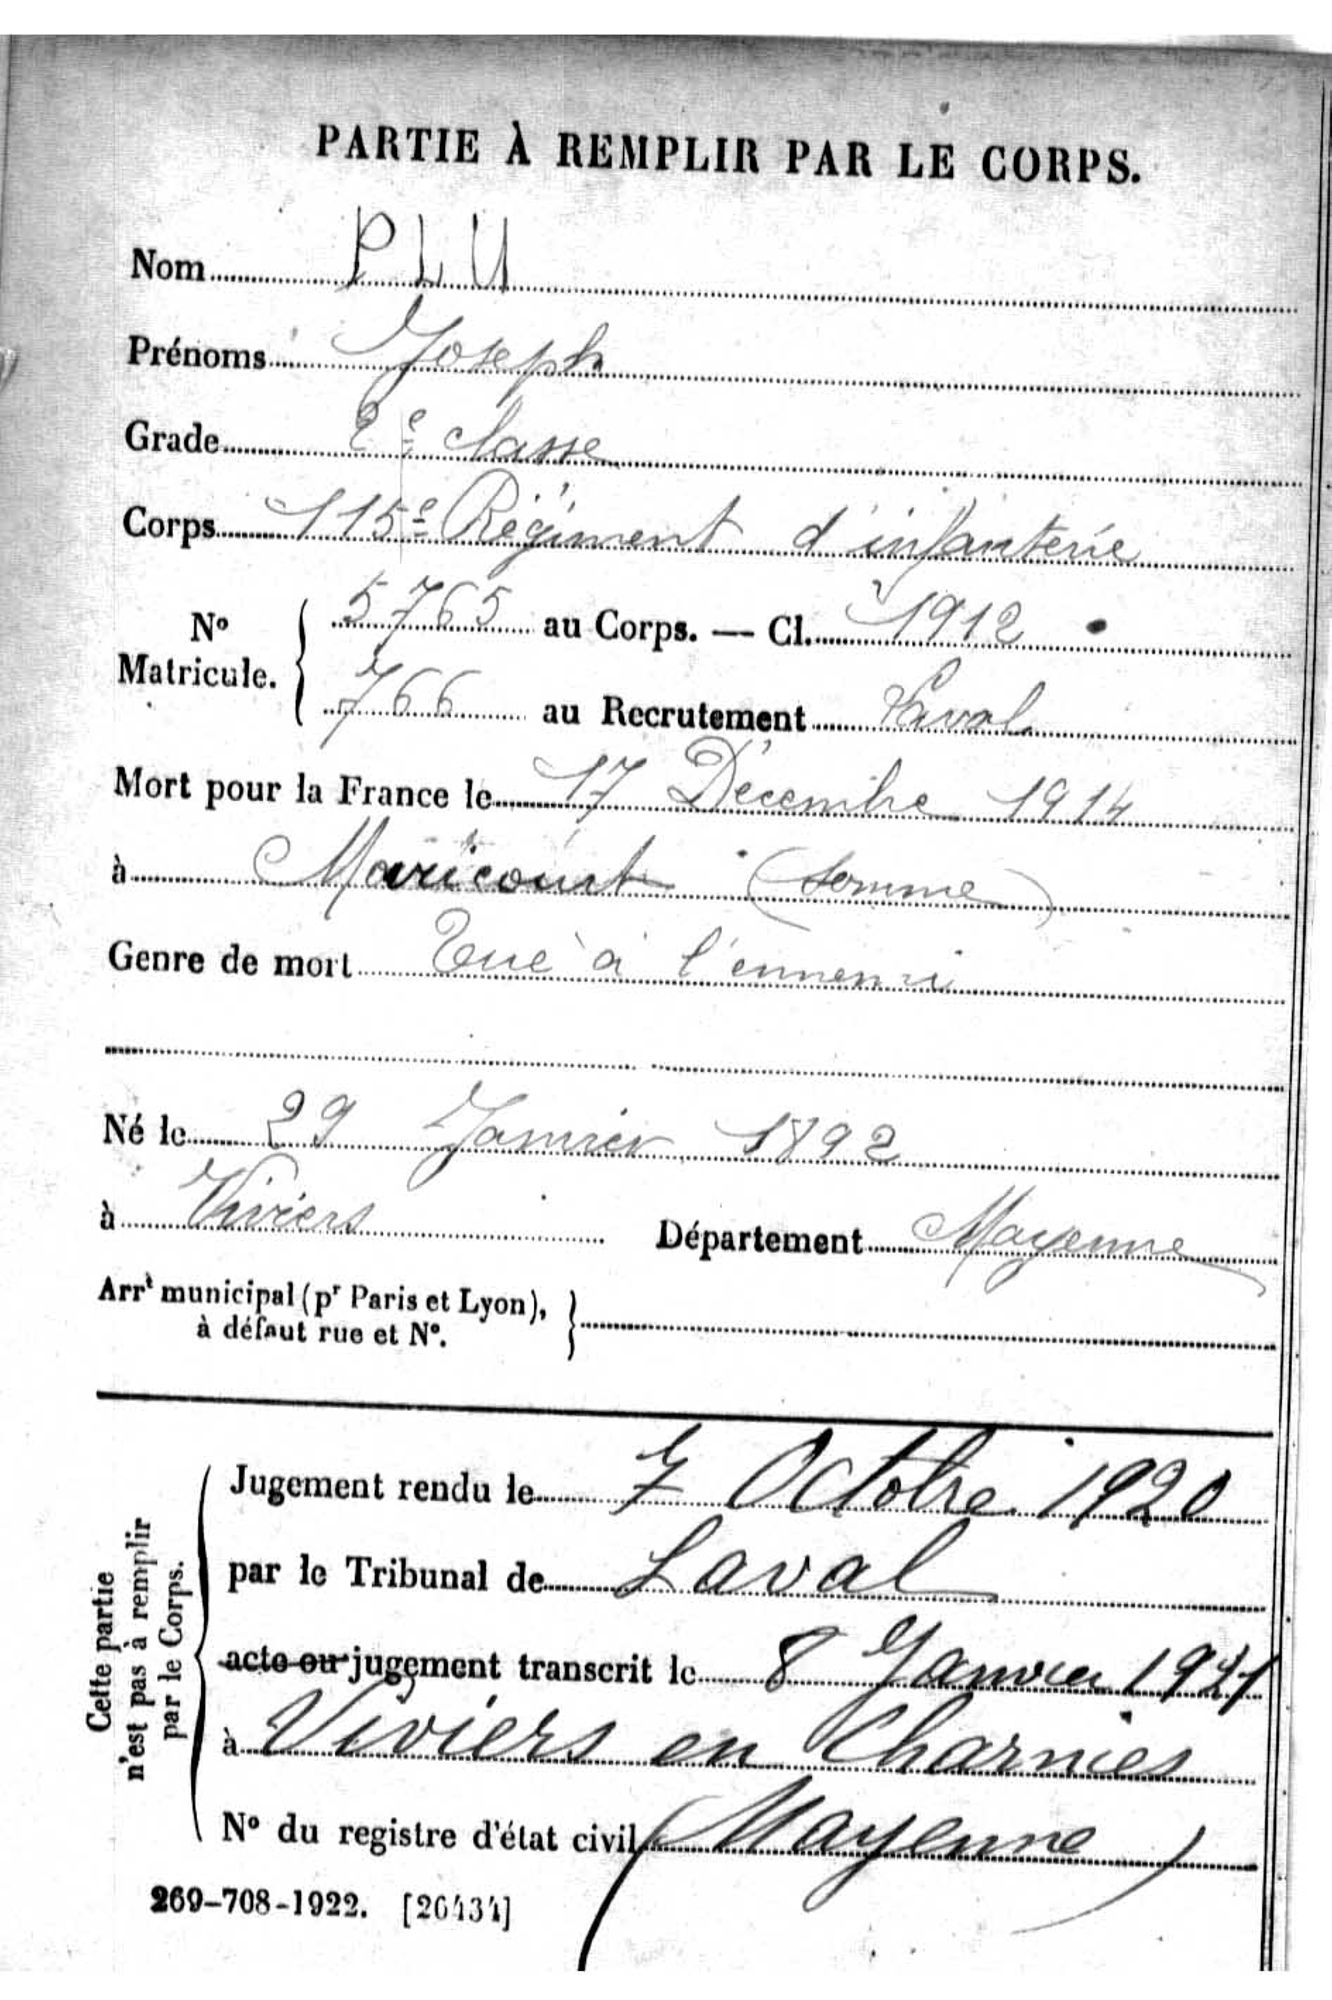 PARTIE À REMPLIR PAR LE CORPS.
Nom PLU
Prénoms Joseph
Grade 2e classe
Corps 115e Régiment d'infanterie
No Matricule. 5765 au Corps. — Cl. 1912
766 au Recrutement Laval
Mort pour la France le 17 Décembre 1914
à Maricourt (Somme)
Genre de mort Tué à l'ennemi
Né le 29 Janvier 1892
à Viviers Département Mayenne
Arrt municipal (pr Paris et Lyon),
à défaut rue et No.
Cette partie
n'est pas à remplir
par le Corps.
Jugement rendu le 7 Octobre 1920
par le Tribunal de Laval
acte ou jugement transcrit le 8 Janvier 1921
à Viviers en Charnies
No du registre d'état civil (Mayenne)
269-708-1922. [26434]